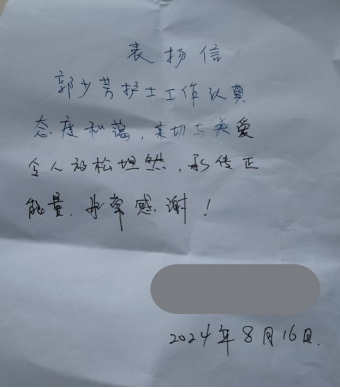 表扬信
郭少芳护士工作认真
态度和蔼，亲切与关爱
令人放松坦然，永传正
能量，非常感谢！
2024年8月16日